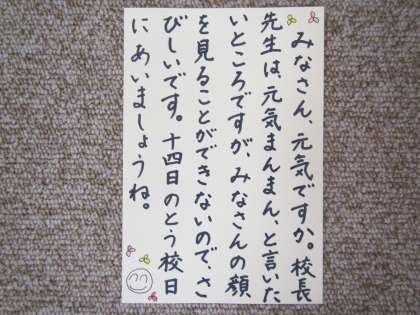 みなさん、元気ですか。校長
先生は、元気まんまん、と言いた
いところですが、みなさんの顔
を見ることができないので、さ
びしいです。十四日のとう校日
にあいましょうね。